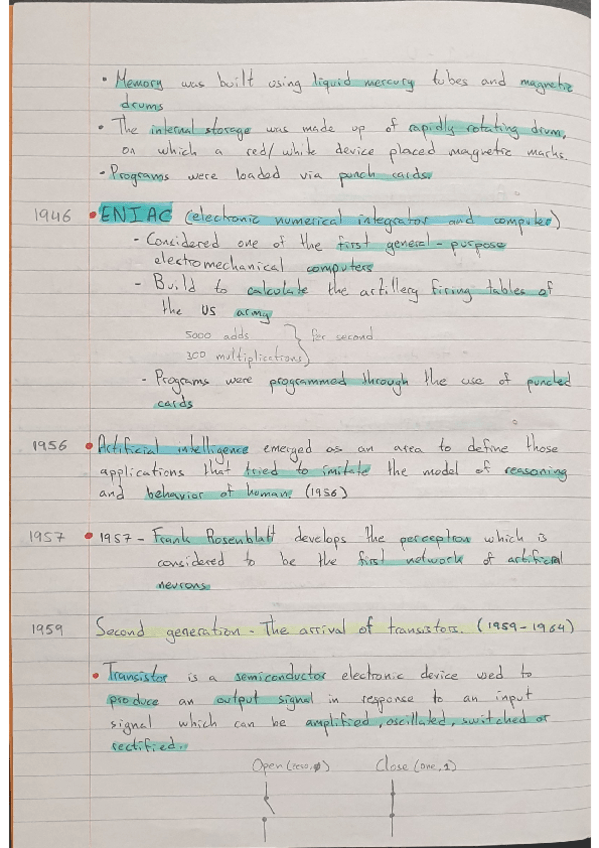 • Memory was built using liquid mercury tubes and magnetic
drums
• The internal storage was made up of rapidly rotating drum,
on which a red/white device placed magnetic marks.
- Programs were loaded via punch cards.
1946 • ENIAC (electronic numerical integrator and computer)
- Considered one of the first general-purpose
electromechanical computers
- Build to calculate the artillery firing tables of
the US army
5000 adds } per second
300 multiplications
- Programs were programmed through the use of punched
cards
1956 • Artificial intelligence emerged as an area to define those
applications that tried to imitate the model of reasoning
and behavior of human (1956)
1957 • 1957 - Frank Rosenblatt develops the perceptron which is
considered to be the first network of artificial
neurons
1959 Second generation - The arrival of transistors. (1959-1964)
• Transistor is a semiconductor electronic device used to
produce an output signal in response to an input
signal which can be amplified, oscillated, switched or
rectified.
Open (zero, 0) Close (one, 1)